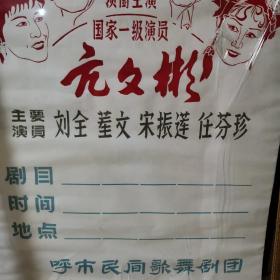 领衔主演
国家一级演员
亢文彬
主要演员 刘全 董文 宋振莲 任芬珍
剧目
时间
地点
呼市民间歌舞剧团